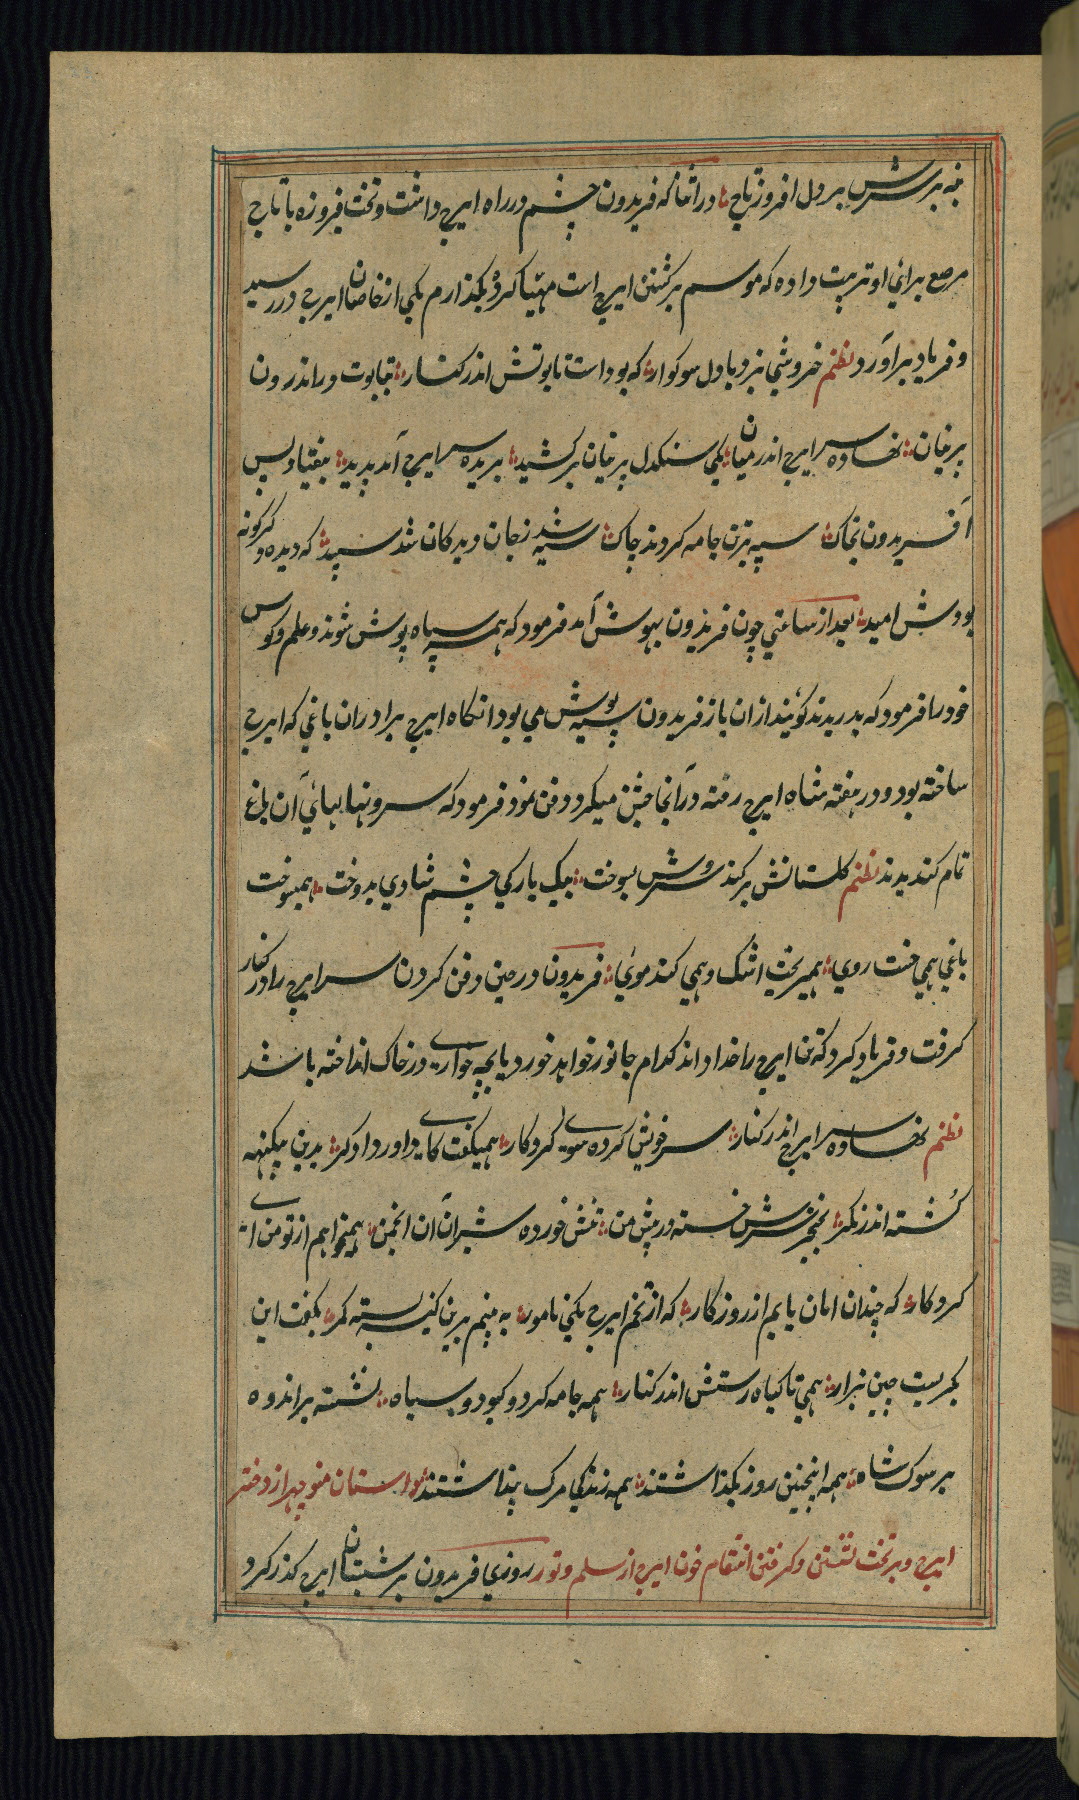 بنه بر سرش بر دل افروز تاج در اثنا که فریدون چشم در راه ایرج داشت و تخت فیروزه با تاج
مرصع برای او ترتیب داده که موسم برگشتن ایرج است مهیا کرد یکی از خاصان ایرج در رسید
و فریاد برآورد نظم خروشی بزد با دل سوکوار که بود است تابوتش اندر کنار بتابوت در اندرون
پرنیان نهاده سر ایرج اندر میان یکی سنکدل پرنیان برکشید بریده سر ایرج آمد پدید بیفتاد پس
آفریدون بخاک سپه بر تن جامه کردند چاک سیه شد زجان دیدکان شد سپید که دیده دکرکونه
بودش امید بعد از ساعتی چون فریدون بهوش آمد فرمود که همه سیاه پوش شوند و علم و کوس
خود را فرمود که بدریدند کویند از ان باز فریدون سیه پوش می بود انکاه ایرج برادران باغی که ایرج
ساخته بود و در هفته شاه ایرج رفته در آنجا جشن میکرد دفن نمود فرمود که سرو نهالهای آن باغ
تمام کندیدند نظم کلستانش برکند سروش بسوخت بیک بارکی چشم شادی بدوخت همیسوخت
باغی همی خست روی همیریخت اشک و همی کند موی فریدون در حین دفن کردن سر ایرج را در کنار
کرفت و فریاد کرد که تن ایرج را خدا داند کدام جانور خواهد خورد یا بچه خواری در خاک انداخته باشد
نظم نهاده سر ایرج اندر کنار سر خویش کرده سوی کردکار همیکفت کای داور دادکر بدین بیکنه
کشته اندر نکر بخنجر سرش خسته در پیش من تنش خورده شیران آن انجمن همیخواهم از تو من ای
کردکار که چندان امان یابم از روزکار که از تخم ایرج یکی نامور به بینم برین کینه بسته کمر بکفت این
بکریست چنین بزار همی تا کیاه رستش اندر کنار همه جامه کرد و کبود و سیاه نشسته بر اندوه
بر سوک شاه همه اینچنین روز بکذاشتند همه زندکی مرک پنداشتند داستان منوچهر از دختر
ایرج و بر تخت نشستن و کرفتن انتقام خون ایرج از سلم و تور روزی فریدون بر شبستان ایرج کذر کرد